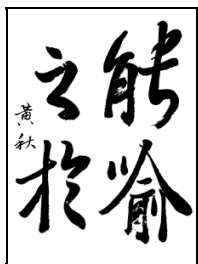 能喻
之於
黃秋